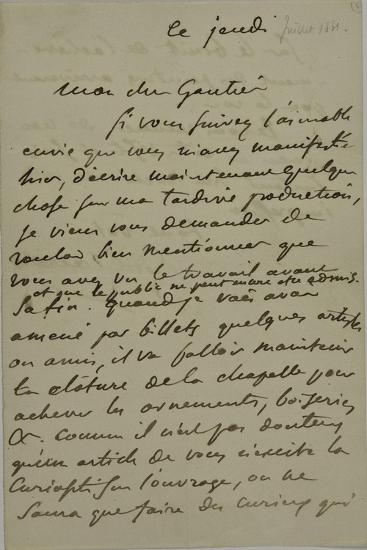 ce jeudi Juillet 1861.
Mon cher Gautier
Si vous suivez l'aimable
envie que vous m'avez manifestée
hier, d'écrire maintenant quelque
chose sur ma tardive production,
je viens vous demander de
vouloir bien mentionner que
vous avez vu le travail avant
et que le public ne peut encore être admis.
sa fin. Quand je vais avoir
amené par billets quelques artistes
ou amis, il va falloir maintenir
la clôture de la chapelle pour
achever les ornements, boiseries
&. Comme il n'est pas douteux
qu'un article de vous n'excite la
curiosité sur l'ouvrage, on ne
saura que faire des curieux qui